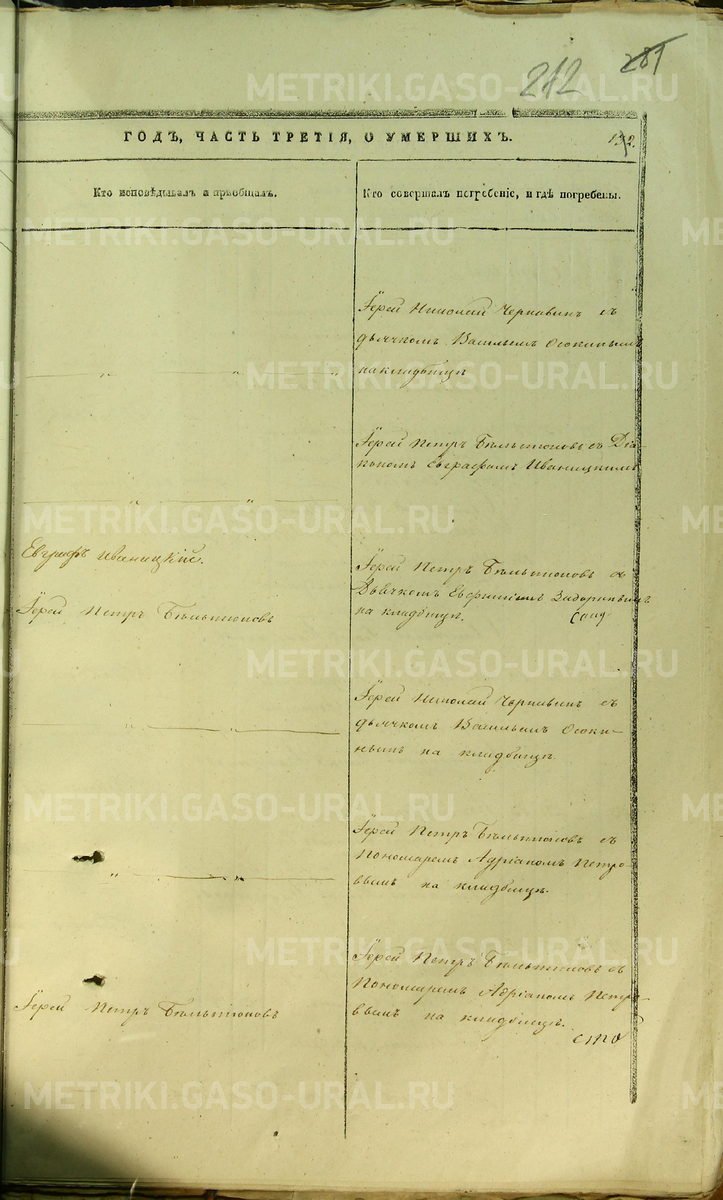 212
281
ГОДЪ, ЧАСТЬ ТРЕТІЯ, О УМЕРШИХЪ.
132.
Кто исповѣдывалъ и пріобщалъ.
Кто совершалъ погребеніе, и гдѣ погребены.
Іерей Николай Чернавинъ съ
дьячкомъ Васильемъ Осокинымъ
на кладбищѣ
Іерей Петръ Бѣльтюковъ съ Діа-
кономъ Евграфомъ Иваницкимъ
Евграфъ Иваницкій.
Іерей Петръ Бѣльтюковъ
Іерей Петръ Бѣльтюковъ съ
Дьячкомъ
на кладбищѣ.
Іерей Николай Чернавинъ съ
дьячкомъ Васильемъ Осоки-
нымъ на кладбищѣ.
Іерей Петръ Бѣльтюковъ съ
Пономаремъ Адріаномъ Петро-
вымъ на кладбищѣ.
Іерей Петръ Бѣльтюковъ
Іерей Петръ Бѣльтюковъ съ
Пономаремъ Адріаномъ Петро-
вымъ на кладбищѣ.
METRIKI.GASO-URAL.RU